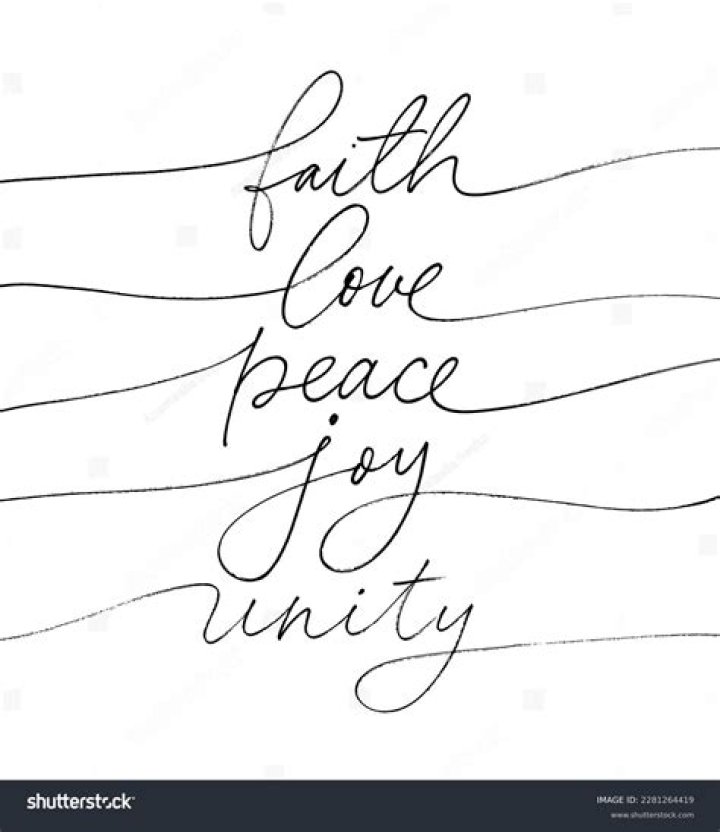 faith
love
peace
joy
unity
shutterstock
IMAGE ID: 2281264419
www.shutterstock.com